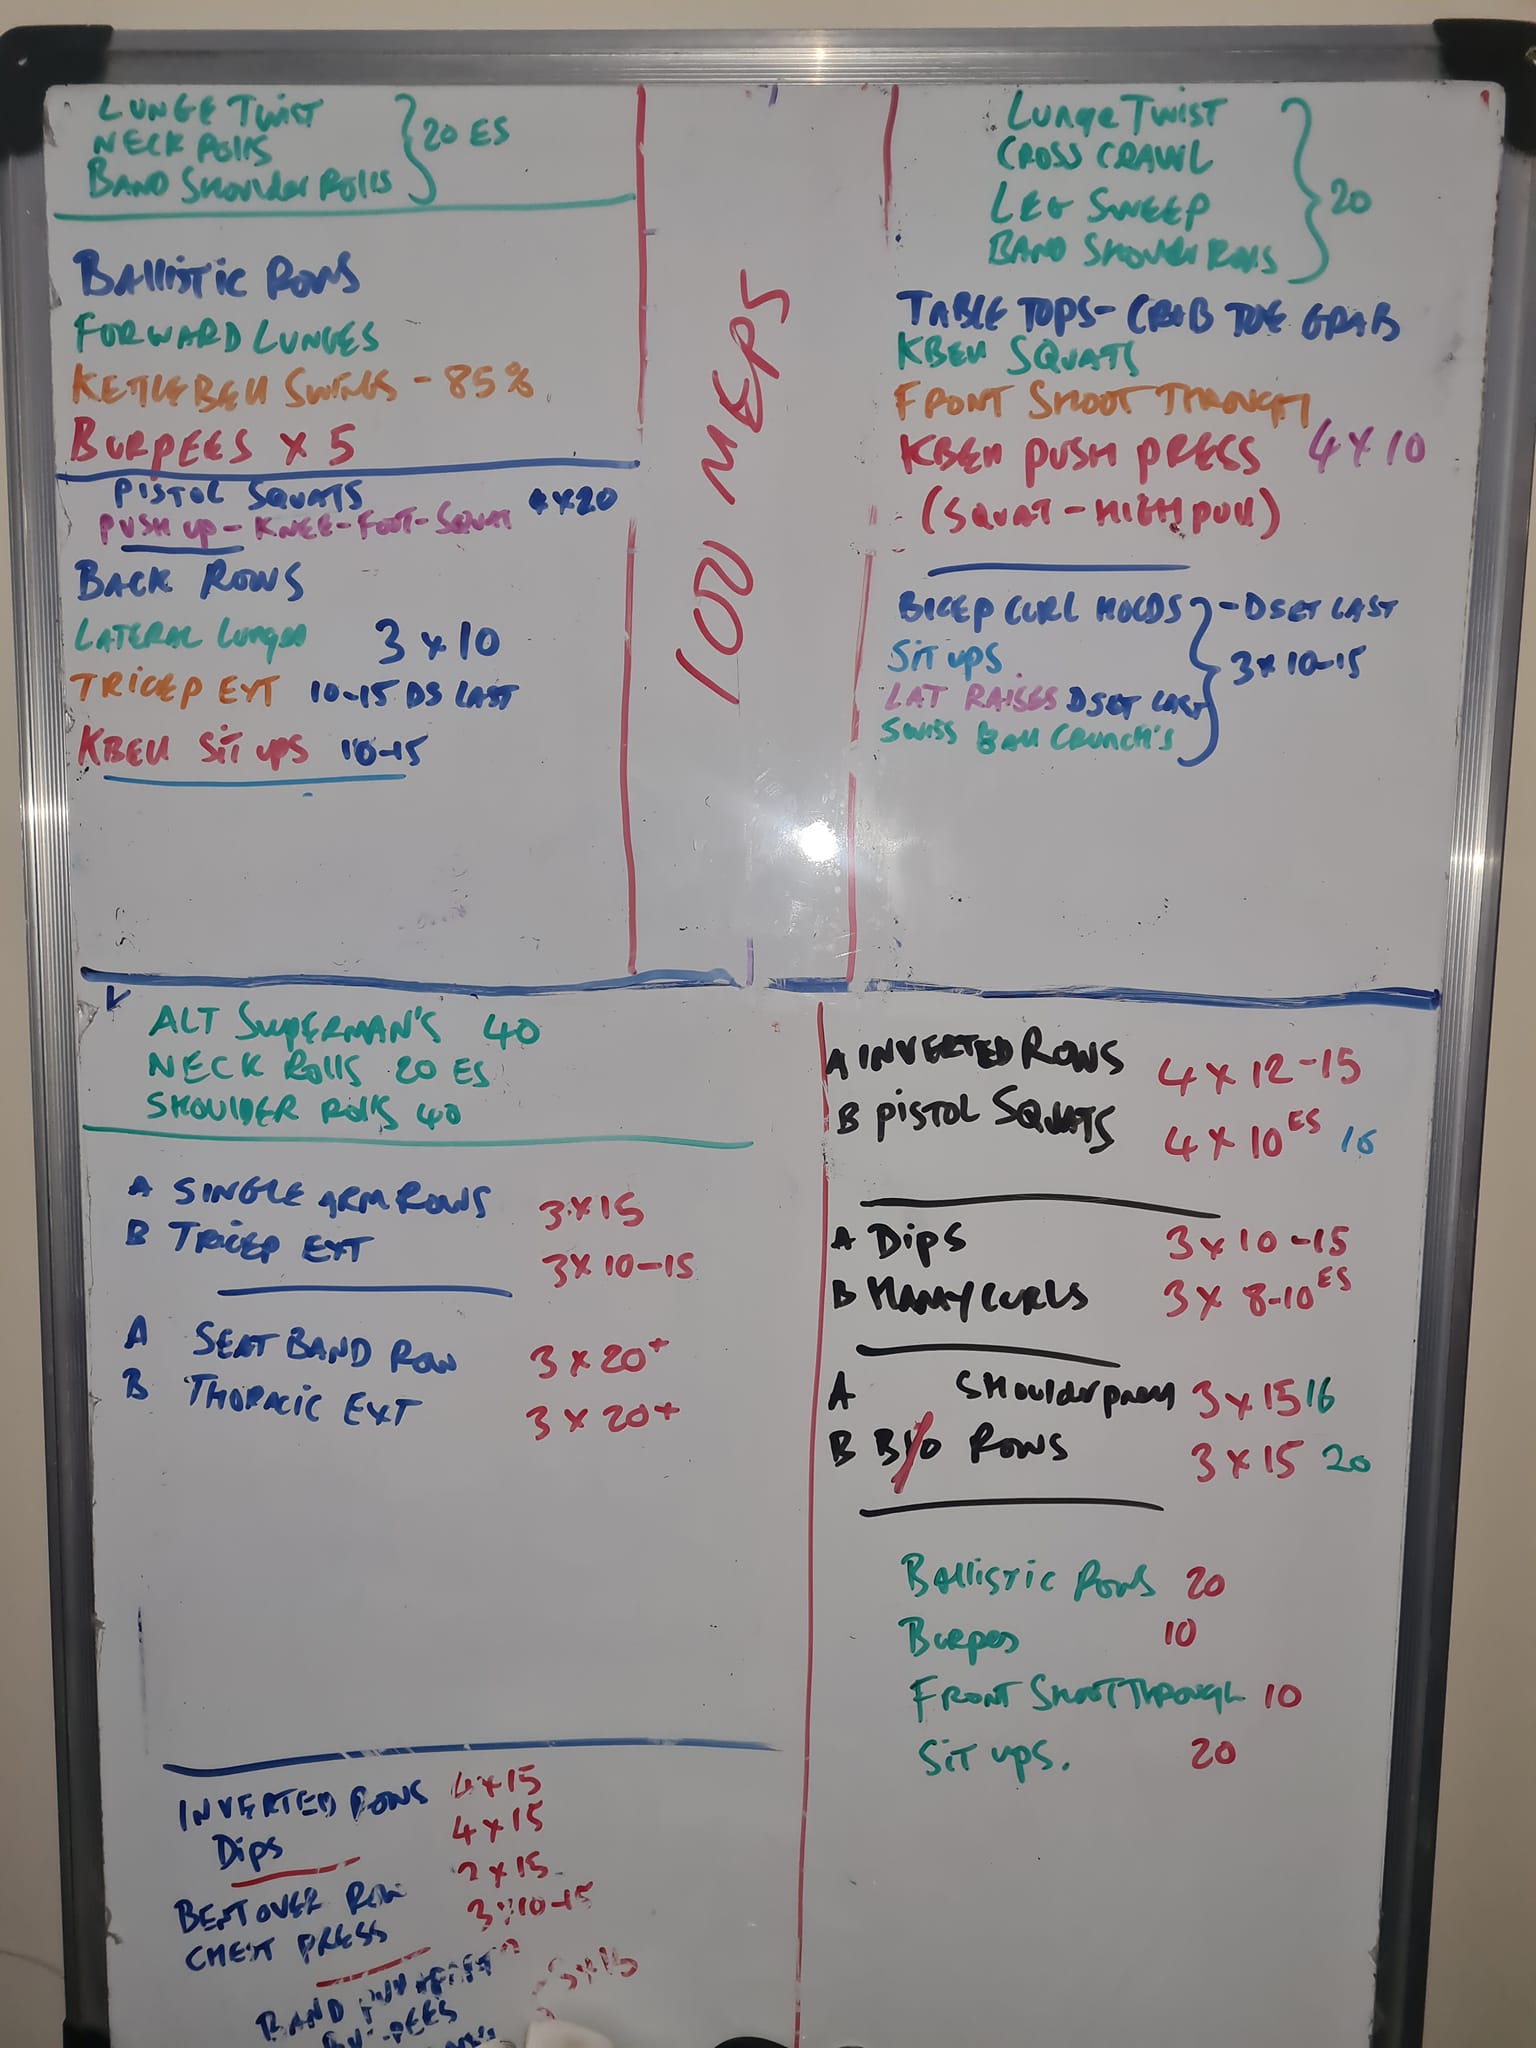 LUNGE TWIST
NECK ROLLS
BAND SHOULDER ROLLS
20 ES
BALLISTIC ROWS
FORWARD LUNGES
KETTLEBELL SWINGS - 85%
BURPEES x 5
PISTOL SQUATS
PUSH UP - KNEE - FOOT - SQUAT 4x20
BACK ROWS
LATERAL LUNGES 3 x 10
TRICEP EXT 10-15 DS LAST
KBELL SIT UPS 10-15
100 MEPS
LUNGE TWIST
CROSS CRAWL
LEG SWEEP
BAND SHOULDER ROLLS
20
TABLE TOPS - CRAB TOE GRAB
KBELL SQUATS
FRONT SHOOT THROUGH
KBELL PUSH PRESS 4 x 10
(SQUAT - HIGH PULL)
BICEP CURL HOLDS - DSET LAST
SIT UPS 3 x 10-15
LAT RAISES DSET LAST
SWISS BALL CRUNCH'S
ALT SUPERMAN'S 40
NECK ROLLS 20 ES
SHOULDER ROLLS 40
A SINGLE ARM ROWS 3x15
B TRICEP EXT 3x10-15
A SEAT BAND ROW 3 x 20+
B THORACIC EXT 3 x 20+
INVERTED ROWS 4x15
DIPS 4 x 15
BENT OVER ROW x 15
CHEST PRESS 3x10-15
BAND
A INVERTED ROWS 4 x 12-15
B PISTOL SQUATS 4 x 10 ES 16
A DIPS 3 x 10-15
B CURLS 3 x 8-10 ES
A SHOULDER PRESS 3 x 15 16
B B/O ROWS 3 x 15 20
BALLISTIC ROWS 20
BURPES 10
FRONT SHOOT THROUGH 10
SIT UPS. 20